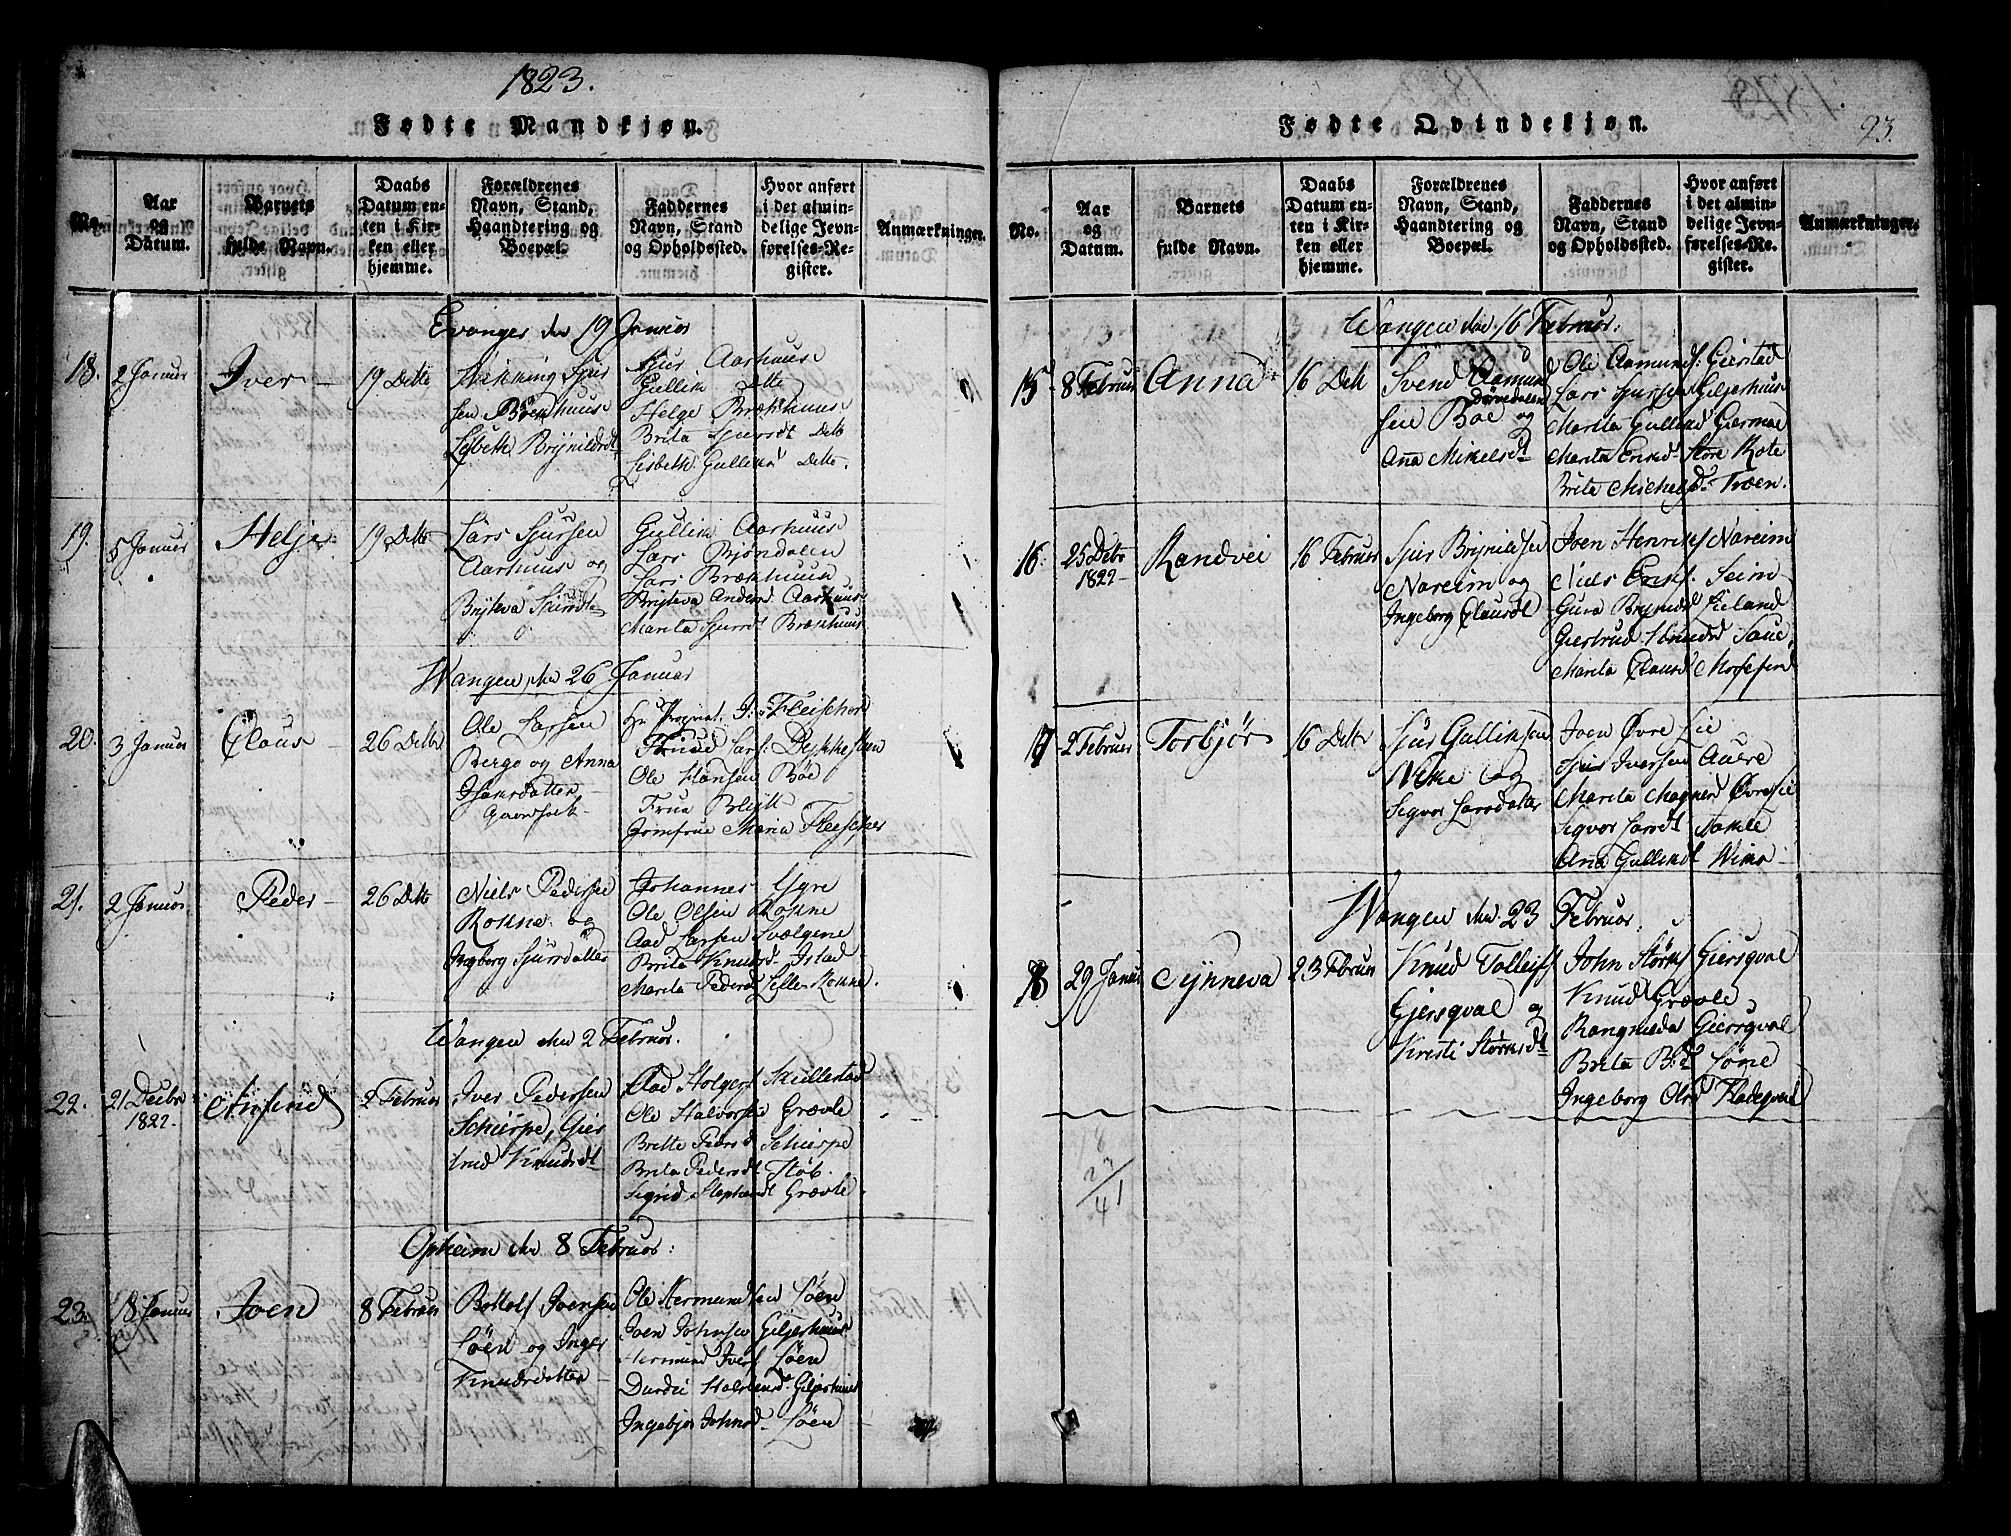 1823.
Fødte Mandkjøn.
No.
Aar og Datum.
Barnets fulde Navn.
Daabs Datum enten i Kirken eller hjemme.
Forældrenes Navn, Stand, Haandtering og Boepæl.
Faddernes Navn, Stand og Opholdssted.
Hvor anført i det almindelige Jevnførelses-Register.
Anmærkninger.
Evanger den 19 Januar
18. 2 Januar Iver 19 Detto
Vikking Sjur
sen Brækhuus
Lisbeth Brynildsdt
Sjur Aarhuus
Gullik Dette
Helge Brækhuus
Brita Sjursdt Dette
Lisbeth Gulliksd Dette.
19. 5 Januar Helje 19 Detto
Lars Sjursen
Aarhuus og
Brÿteva Sjursdtr
Gullik Aarhuus
Lars Bjöndalen
Lars Brækhuus
Brÿteva Andersd Aarhuus
Marita Sjursdt Brækhuus
Wangen den 26 Januar
20. 3 Januar Claus 26 Detto
Ole Larsen
Berge og Anna
Hansdatter
Ole Hansen Böe
Frua Blÿtt
Jomfrue Maria Fleischer
21. 2 Januar Peder 26 Dette
Niels Pedersen
Rokne og
Ingborg Sjursdatter
Johannes Ygre
Ole Olsen Rokne
Aad Larsen Svælgene
Brita Knudsd Istad
Marita Pedersd Lille Rokne.
Wangen den 2 Februar.
22. 21 Decbr 1822 2 Februar
Iver Pedersen
Schierpe, Gier
trud Knudsdt
Aad Holgers Skiellestad
Ole Halvorsen Grævle
Britte Pedersd Schierpe
Brita Pedersdt Støb.
Sigrid Stephensdt Grævle
Opheim den 8 Februar:
23. 18 Januar Joen 8 Februar
Bottolf Joensen
Löen og Inger
Knudsdatter
Ole Hermundsen Löen
Joen Johnsen Giljerhuus
Hermund Ivers Löen
Durdei Halsteensd Giljerhuus
Ingebjør Johnsd Löen
Fødte Qvindekjøn.
23
No.
Aar og Datum.
Barnets fulde Navn.
Daabs Datum enten i Kirken eller hjemme.
Forældrenes Navn, Stand, Haandtering og Boepæl.
Faddernes Navn, Stand og Opholdssted.
Hvor anført i det almindelige Jevnførelses-Register.
Anmærkninger.
Wangen den 16 Februar.
15 8 Februar Anna 16 Dett
Svend Aamund
sen Böe og
Anna Mikelsdt
Ole Aamunds Gierstad
Lars Sjursen Giljerhuus
Marita Gulliksd Giermoe
Marita Eriksd Store Rote
Brite Michelsd Troen.
16. 25 Debr 1822 Randvei 16 Februar
Sjur Brynildsen
Nareim og
Ingeborg Clausdt
Joen Henriks Nareim
Niels Eriks. Seim
Gura Brynildsd Lieland
Marita Clausd
17 2 Februar Torbjör 16 Dette
Sjur Gulliksen
Wike og
Sigvor Larsdatter
Joen Övre Lie
Sjur Iversen Auere
Marita Magnesd Øvrelie
Sigvor Larsdt Nakle
Anna Gulliksdt Wike
Wangen den 23 Februar.
18 29 Januar Synneva 23 Februar
Knud Tolleifs
Gjersqval og
Kristi Störksdt
John Störks Giersqval
Knud Grævle
Rangnilda Giersqval
Brita B.d Löne
Ingeborg Olsd Fladeqval
18
23
41